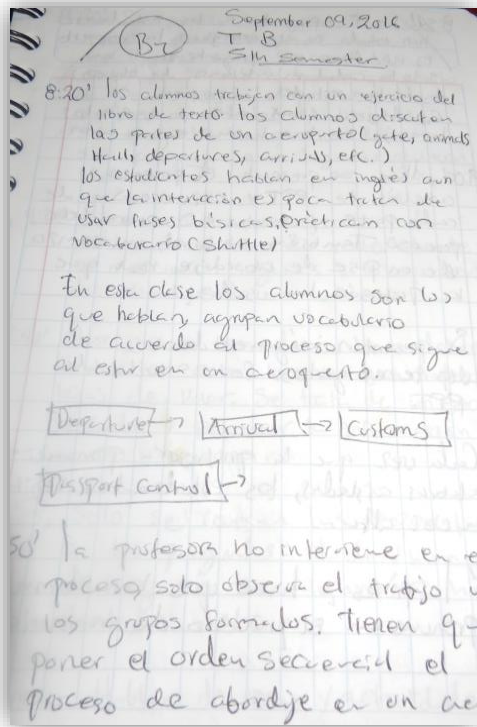 September 09, 2016
B2
T B
5th Semester
8:20' los alumnos trabajan con un ejercicio del
libro de texto los alumnos discuten
las partes de un aeropuerto (gate,
Hall, departures, arrivals, etc.)
los estudiantes hablan en inglés aun
que la interacción es poca tratan de
usar frases básicas, practican con
vocabulario (Shuttle)
En esta clase los alumnos son los
que hablan, agrupan vocabulario
de acuerdo al proceso que sigue
al estar en un aeropuerto.
Departure → Arrival → Customs
Passport Control →
50' la profesora no interviene en e
proceso, solo observa el trabajo
los grupos formados. Tienen q
poner el orden secuencial el
proceso de abordaje en un ae